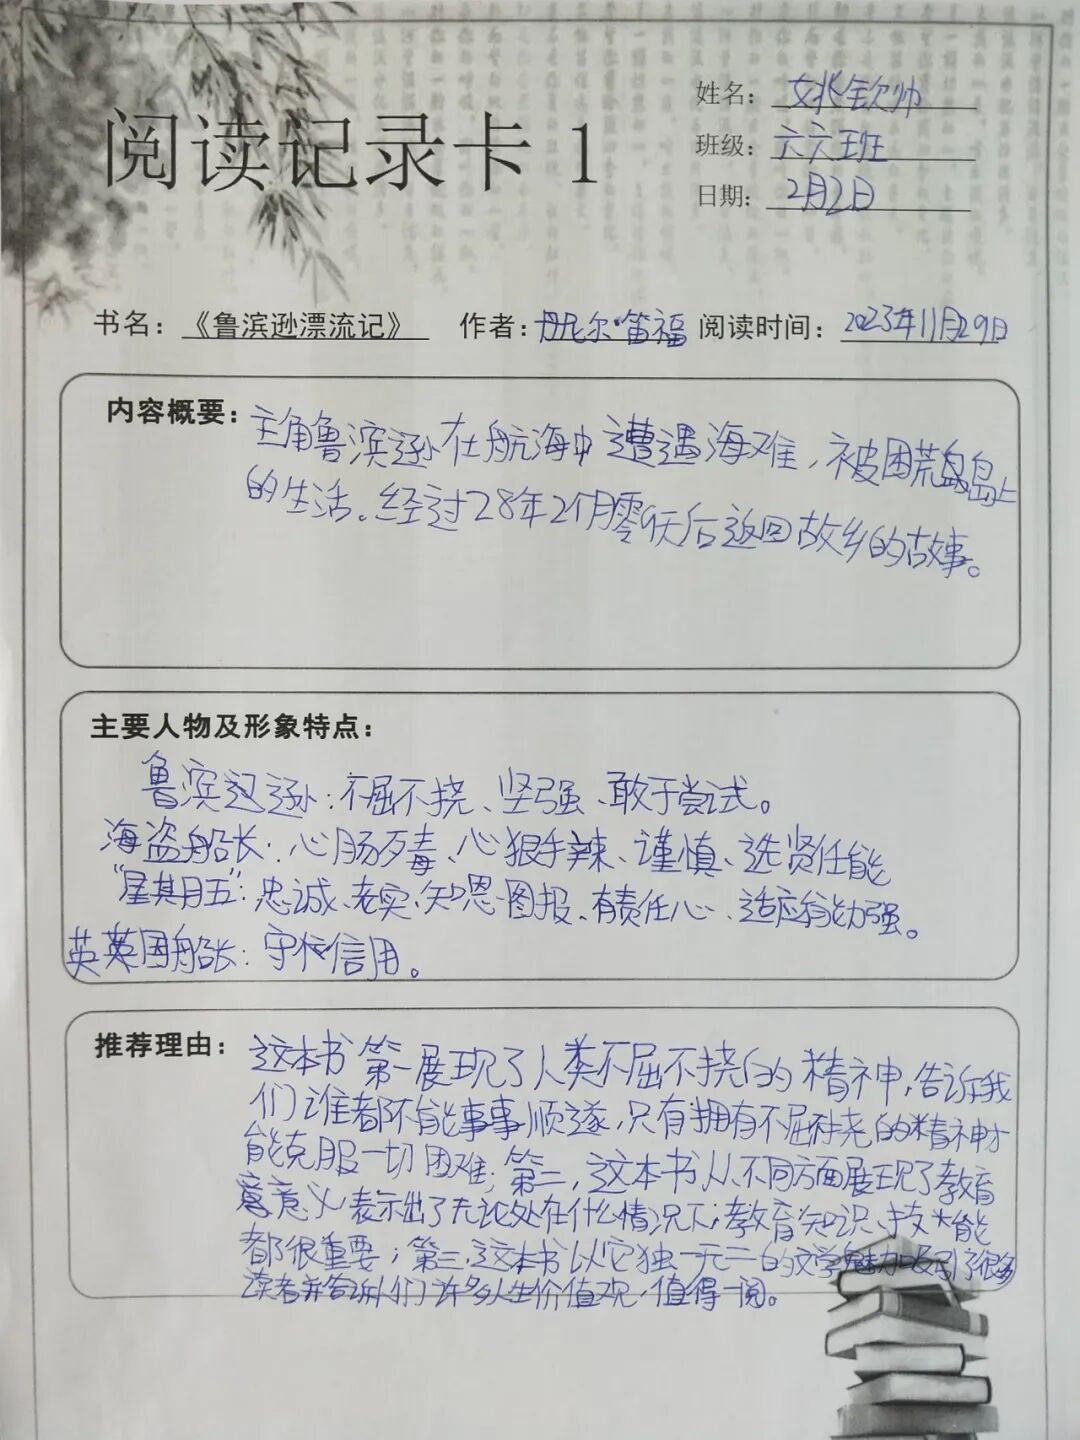 阅读记录卡 1
姓名：姚钦帅
班级：六六班
日期：2月2日
书名：《鲁滨逊漂流记》 作者：丹尼尔·笛福 阅读时间：2023年11月29日
内容概要：主角鲁滨逊在航海中遭遇海难，被困荒岛岛上
的生活。经过28年2个月零19天后返回故乡的故事。
主要人物及形象特点：
鲁滨逊：不屈不挠、坚强、敢于尝试。
海盗船长：心肠歹毒、心狠手辣、谨慎、选贤任能
"星期五"：忠诚、老实、知恩图报、有责任心、适应能力强。
英英国船长：守信用。
推荐理由：这本书第一展现了人类不屈不挠的精神，告诉我
们谁都不能事事顺遂，只有拥有不屈不挠的精神才
能克服一切困难；第二，这本书从不同方面展现了教育
意意义，表示出了无论处在什么情况下，教育、知识、技能
都很重要；第三，这本书以它独一无二的文学魅力吸引了很多
读者并告诉人们许多人生价值观，值得一阅。